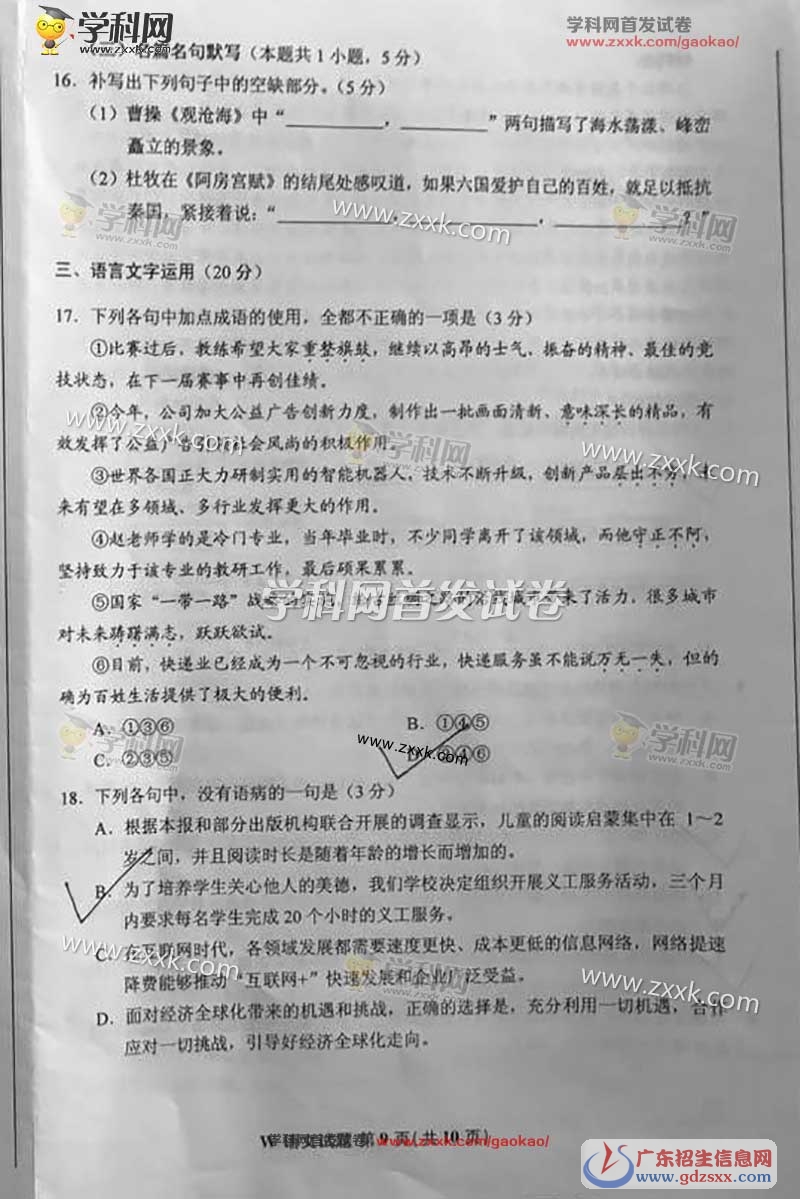 学科网
www.zxxk.com
学科网首发试卷
www.zxxk.com/gaokao/
名篇名句默写（本题共1小题，5分）
16．补写出下列句子中的空缺部分。（5分）
（1）曹操《观沧海》中“__________，__________”两句描写了海水荡漾、峰峦
矗立的景象。
（2）杜牧在《阿房宫赋》的结尾处感叹道，如果六国爱护自己的百姓，就足以抵抗
秦国，紧接着说：“__________，__________，__________？”
学科网
www.zxxk.com
学科网
三、语言文字运用（20分）
17．下列各句中加点成语的使用，全都不正确的一项是（3分）
①比赛过后，教练希望大家重整旗鼓，继续以高昂的士气、振奋的精神、最佳的竞
技状态，在下一届赛事中再创佳绩。
②今年，公司加大公益广告创新力度，制作出一批画面清新、意味深长的精品，有
效发挥了公益广告 社会风尚的积极作用。
www.zxxk.com
学科网
www.zxxk.com
③世界各国正大力研制实用的智能机器人，技术不断升级，创新产品层出不穷，
来有望在多领域、多行业发挥更大的作用。
④赵老师学的是冷门专业，当年毕业时，不少同学离开了该领域，而他守正不阿，
坚持致力于该专业的教研工作，最后硕果累累。
学科网首发试卷
⑤国家“一带一路”战 来了活力，很多城市
对未来踌躇满志，跃跃欲试。
⑥目前，快递业已经成为一个不可忽视的行业，快递服务虽不能说万无一失，但的
确为百姓生活提供了极大的便利。
A．①③⑥ B．①④⑤
C．②③⑤ D．②④⑥
学科网
www.zxxk.com
学科网
18．下列各句中，没有语病的一句是（3分）
A．根据本报和部分出版机构联合开展的调查显示，儿童的阅读启蒙集中在 1～2
岁之间，并且阅读时长是随着年龄的增长而增加的。
B．为了培养学生关心他人的美德，我们学校决定组织开展义工服务活动，三个月
内要求每名学生完成 20 个小时的义工服务。
C．在互联网时代，各领域发展都需要速度更快、成本更低的信息网络，网络提速
降费能够推动“互联网+”快速发展和企业广泛受益。
www.zxxk.com
学科网
www.zxxk.com
D．面对经济全球化带来的机遇和挑战，正确的选择是，充分利用一切机遇，合作
应对一切挑战，引导好经济全球化走向。
学科网首发试卷 www.zxxk.com/gaokao/
语文试题 第 9 页（共 10 页）
广东招生信息网
www.gdzsxx.com